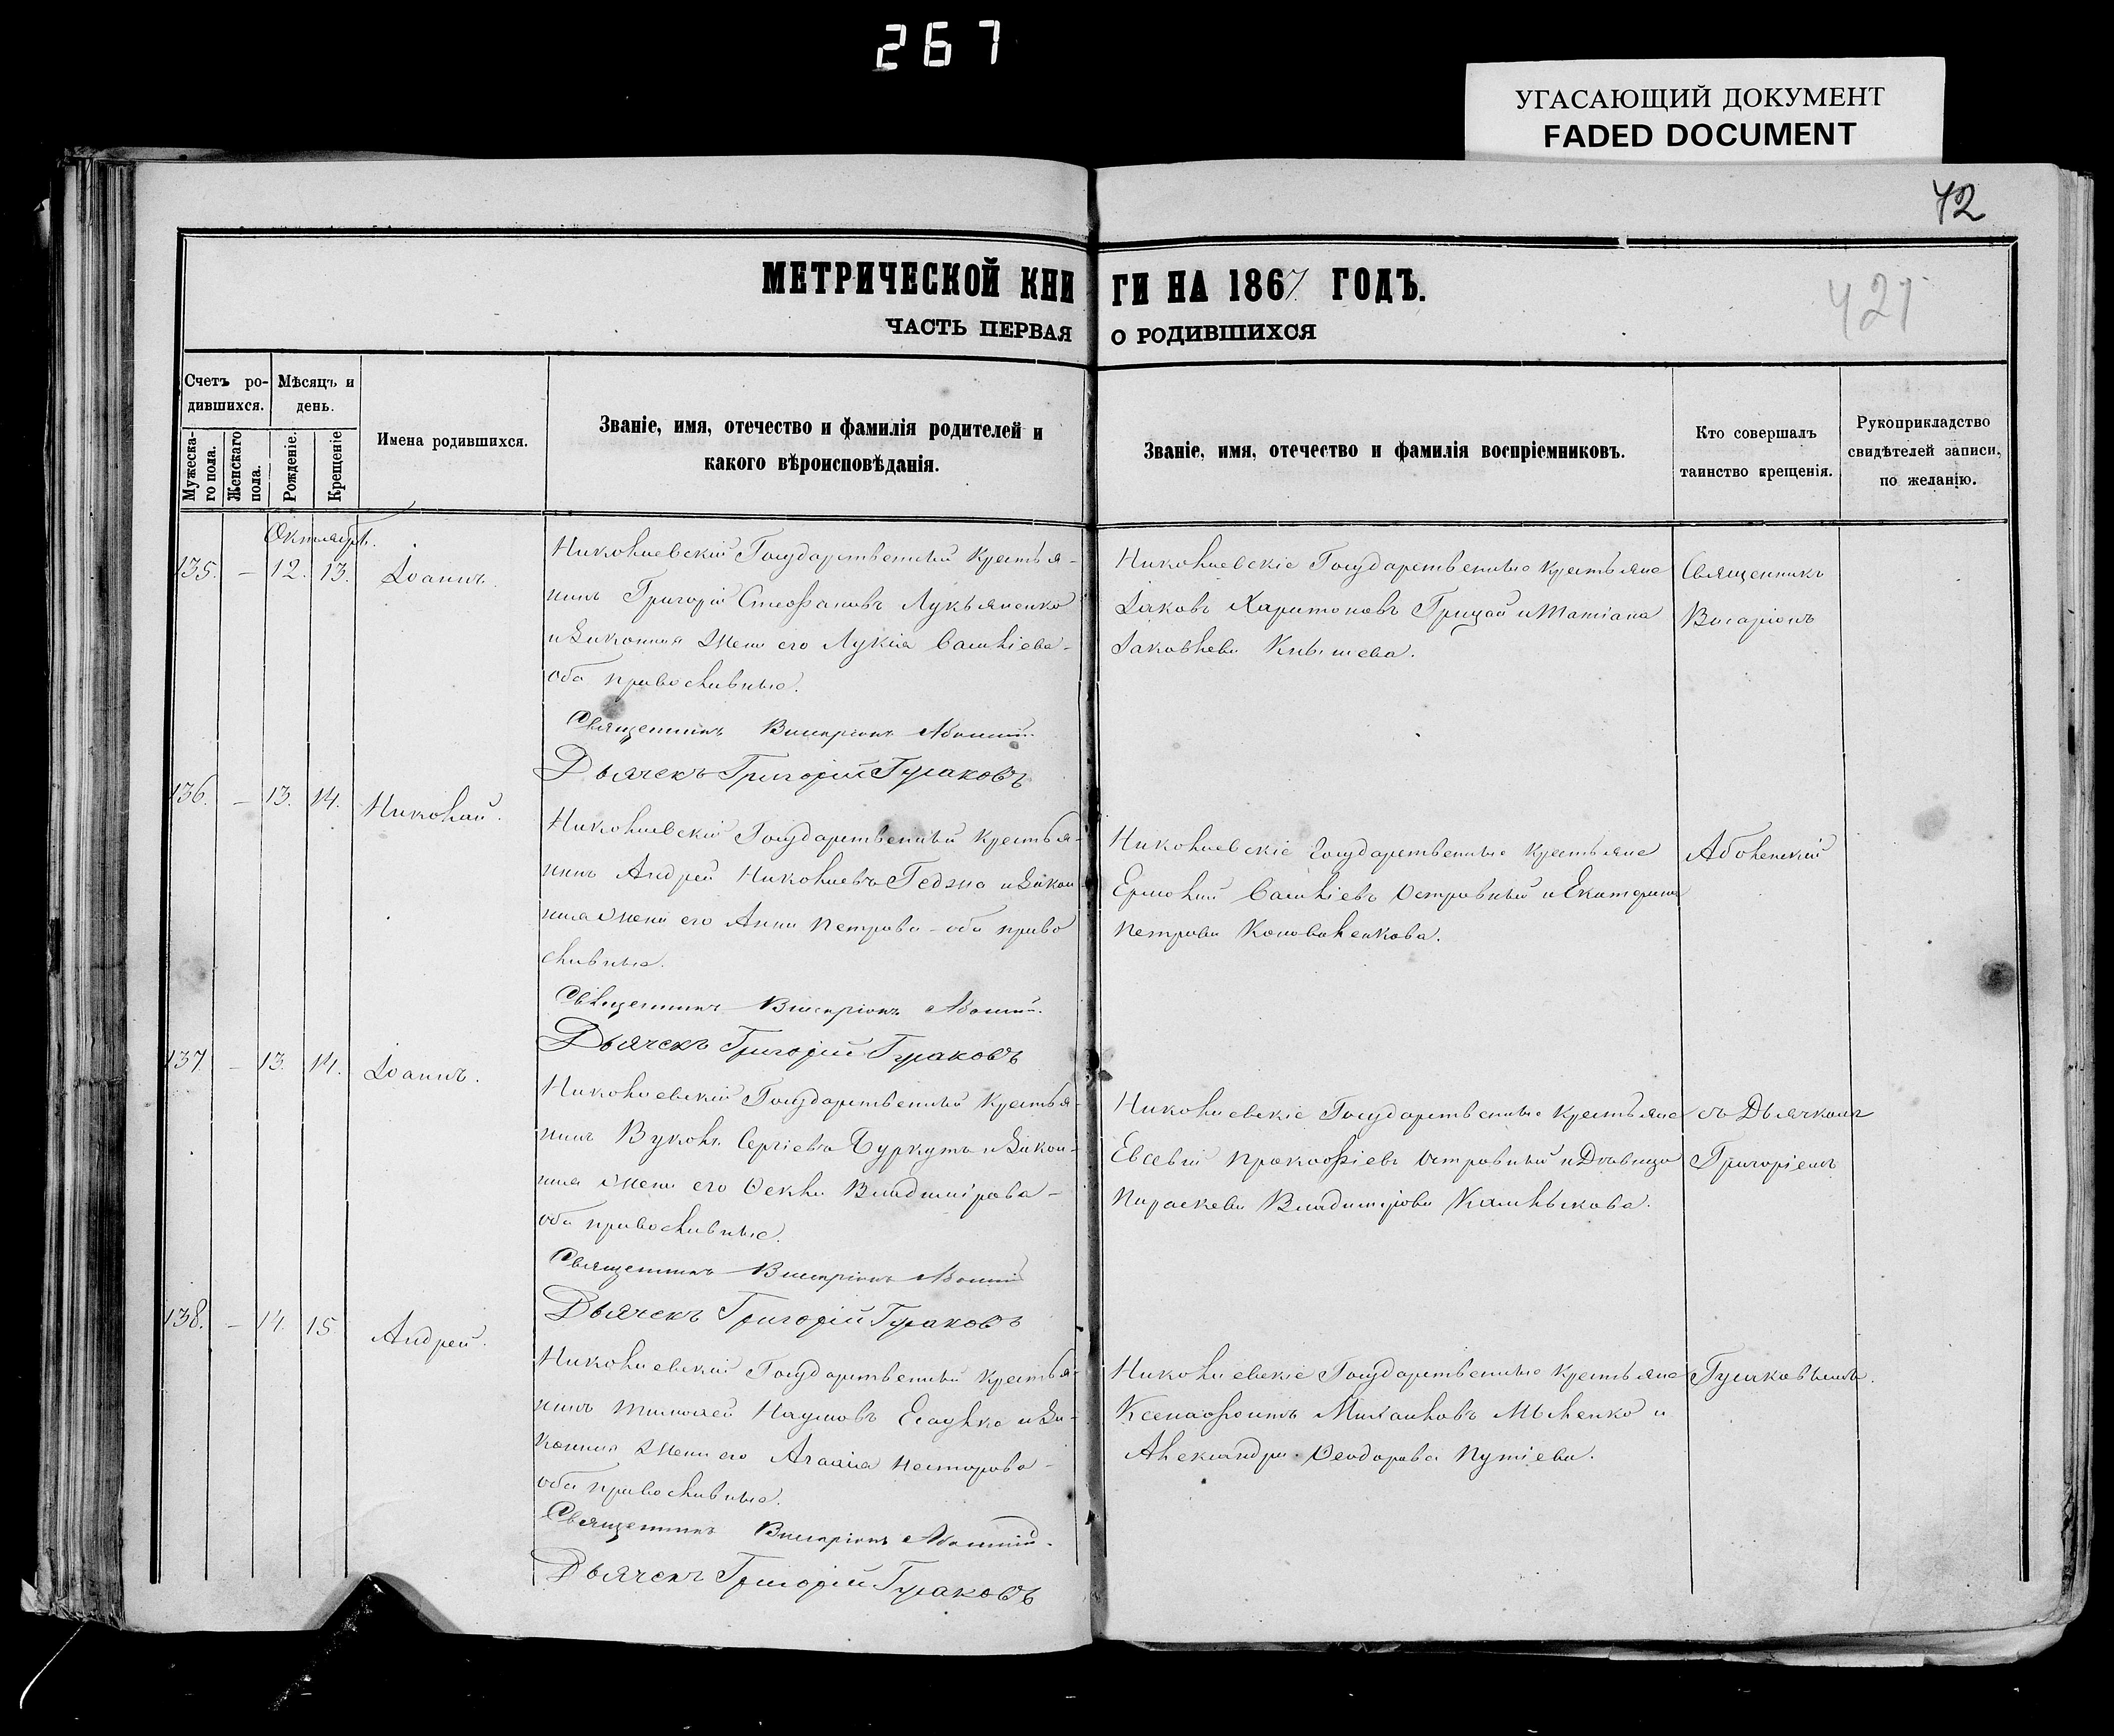 267
УГАСАЮЩИЙ ДОКУМЕНТ
FADED DOCUMENT
42
421
МЕТРИЧЕСКОЙ КНИГИ НА 1867 ГОДЪ.
ЧАСТЬ ПЕРВАЯ О РОДИВШИХСЯ
Счетъ ро-
дившихся.
Мужеска-
го пола.
Женскаго
пола.
Мѣсяцъ и
день.
Рожденіе.
Крещеніе
Имена родившихся.
Званіе, имя, отечество и фамилія родителей и
какого вѣроисповѣданія.
Званіе, имя, отечество и фамилія воспріемниковъ.
Кто совершалъ
таинство крещенія.
Рукоприкладство
свидѣтелей записи,
по желанію.
Октябрь.
135. – 12. 13. Іоаннъ.
Николаевскій Государственный крестья-
нинъ Григорій Стефановъ Лукьяненко
и законная жена его Лукія Савліева –
оба православные.
Священникъ Виссаріонъ
Дьячекъ Григорій Гулаковъ
Николаевскіе Государственные крестьяне
Іаковъ Харитоновъ Грицай и Татіана
Іаковлева Кившева.
Священникъ
Висаріонъ
136. – 13. 14. Николай.
Николаевскій Государственный крестья-
нинъ Андрей Николаевъ Гедзно и закон-
ная жена его Анна Петрова – оба право
славные.
Священникъ Виссаріонъ
Дьячекъ Григорій Гулаковъ
Николаевскіе Государственные крестьяне
Ермолай Савліевъ Островный и Екатерина
Петрова Коноваленкова.
Аболенскій
137 – 13. 14. Іоаннъ.
Николаевскій Государственный крестья-
нинъ Вуколъ Сергіевъ Буркутъ и закон-
ная жена его Ѳекла Владимірова –
оба православные.
Священникъ Виссаріонъ
Дьячекъ Григорій Гулаковъ
Николаевскіе Государственные крестьяне
Евсевій Прокофіевъ Островный и Дѣвица
Параскева Владимірова Калмыкова.
съ Дьячкомъ
Григоріемъ
138. – 14 15. Андрей.
Николаевскій Государственный крестья-
нинъ Тимофей Наумовъ Есаулко и за-
конная жена его Агафія Несторова –
оба православные.
Священникъ Виссаріонъ
Дьячекъ Григорій Гулаковъ
Николаевскіе Государственные крестьяне
Ксенофонтъ Михаиловъ и
Александра Ѳеодорова Путіева.
Гулаковымъ.